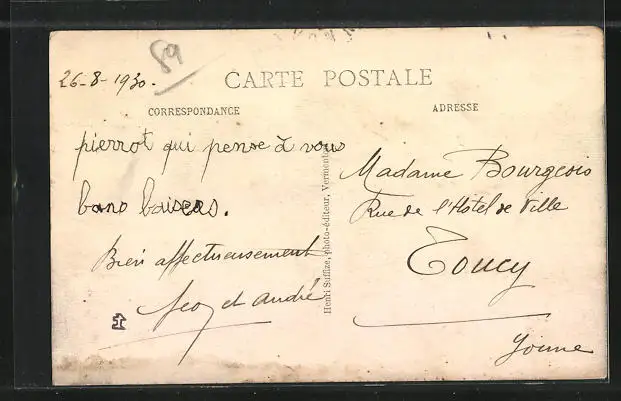 89
26-8-1930.
CARTE POSTALE
CORRESPONDANCE
ADRESSE
pierrot qui pense à vous
bons baisers.
Bien affectueusement
et andré
Henri Suffize, photo-éditeur, Vermenton
Madame Bourgeois
Rue de l'Hôtel de Ville
Toucy
Yonne